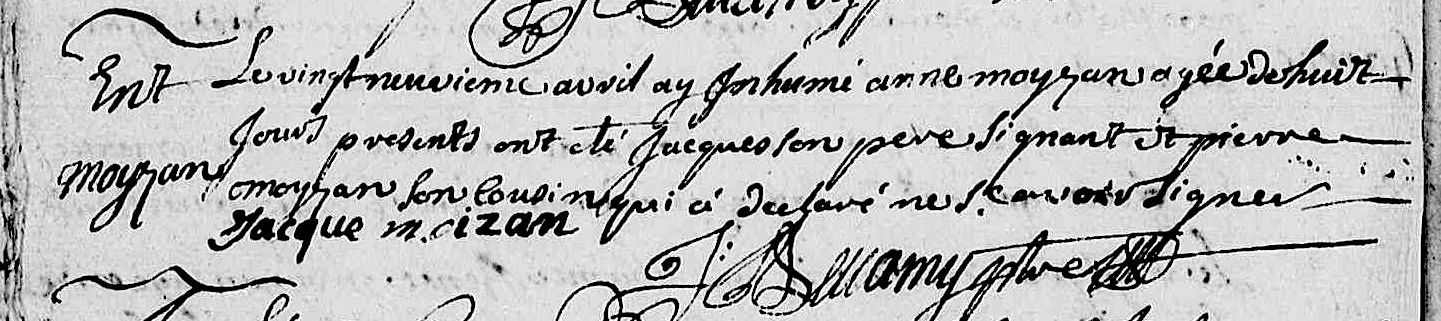 Ent Le vingt neuvieme avril ay Inhumé anne moyzan agée de huit
Jours presents ont eté Jacques son pere signant et pierre
moyzan
moyzan son Cousin qui a declaré ne scavoir signer
Jacque m.cizan
ptre